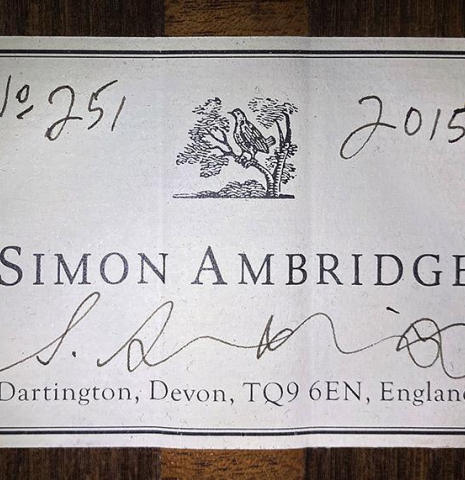 No 251
2015
SIMON AMBRIDGE
S. Ambridge
Dartington, Devon, TQ9 6EN, England